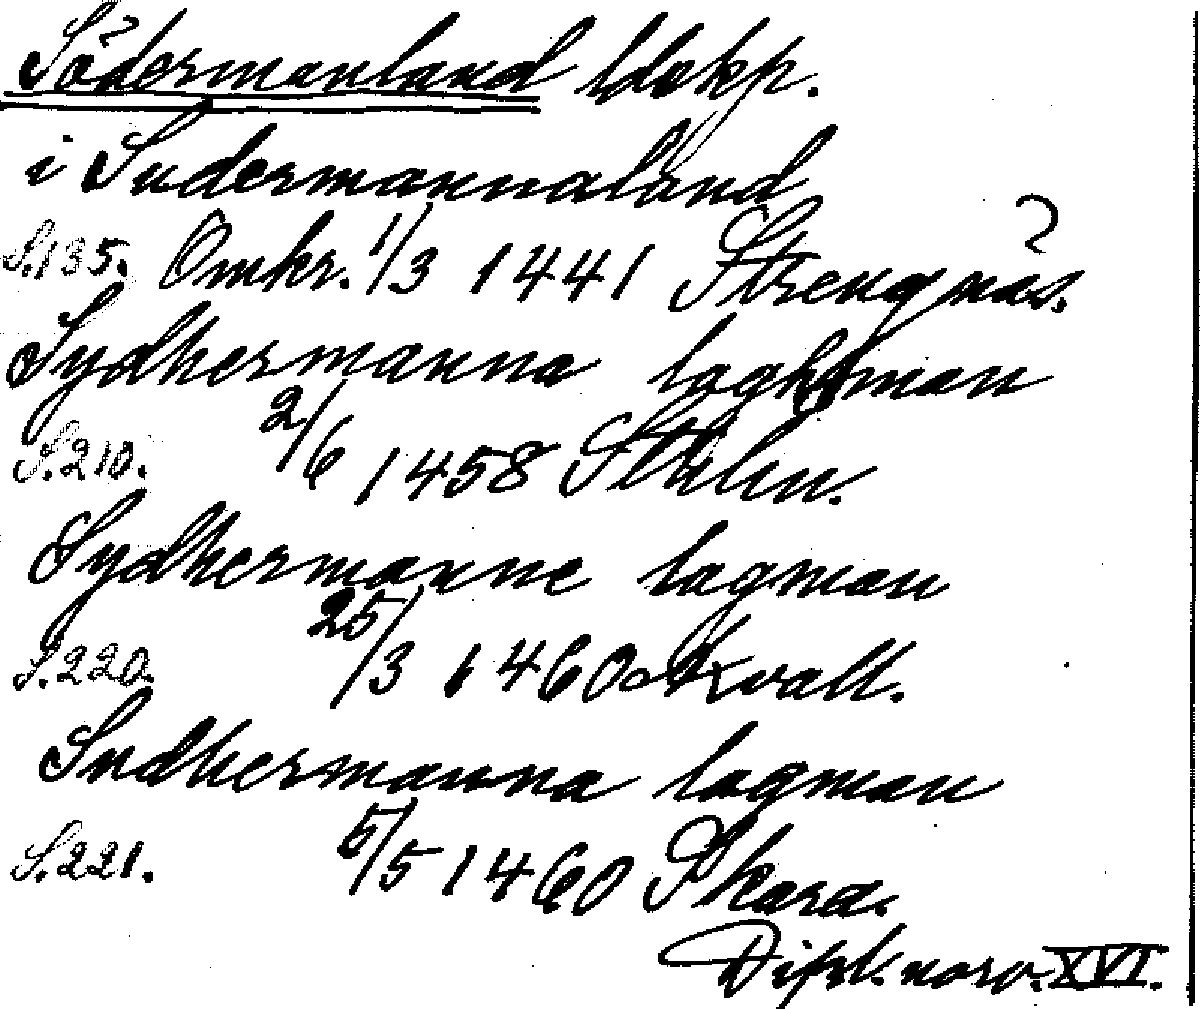 Södermanland ldskp.
i Sudermannaland
S.135. Omkr. 1/3 1441 Strengnäs.
Sydhermanna laghman
S.210. 2/6 1458 Sthlm.
Sydhermanne lagman
S.220. 25/3 1460 Axvall.
Sudhermanna lagman
S.221. 5/5 1460 Skara.
Dipl. norv. XVI.